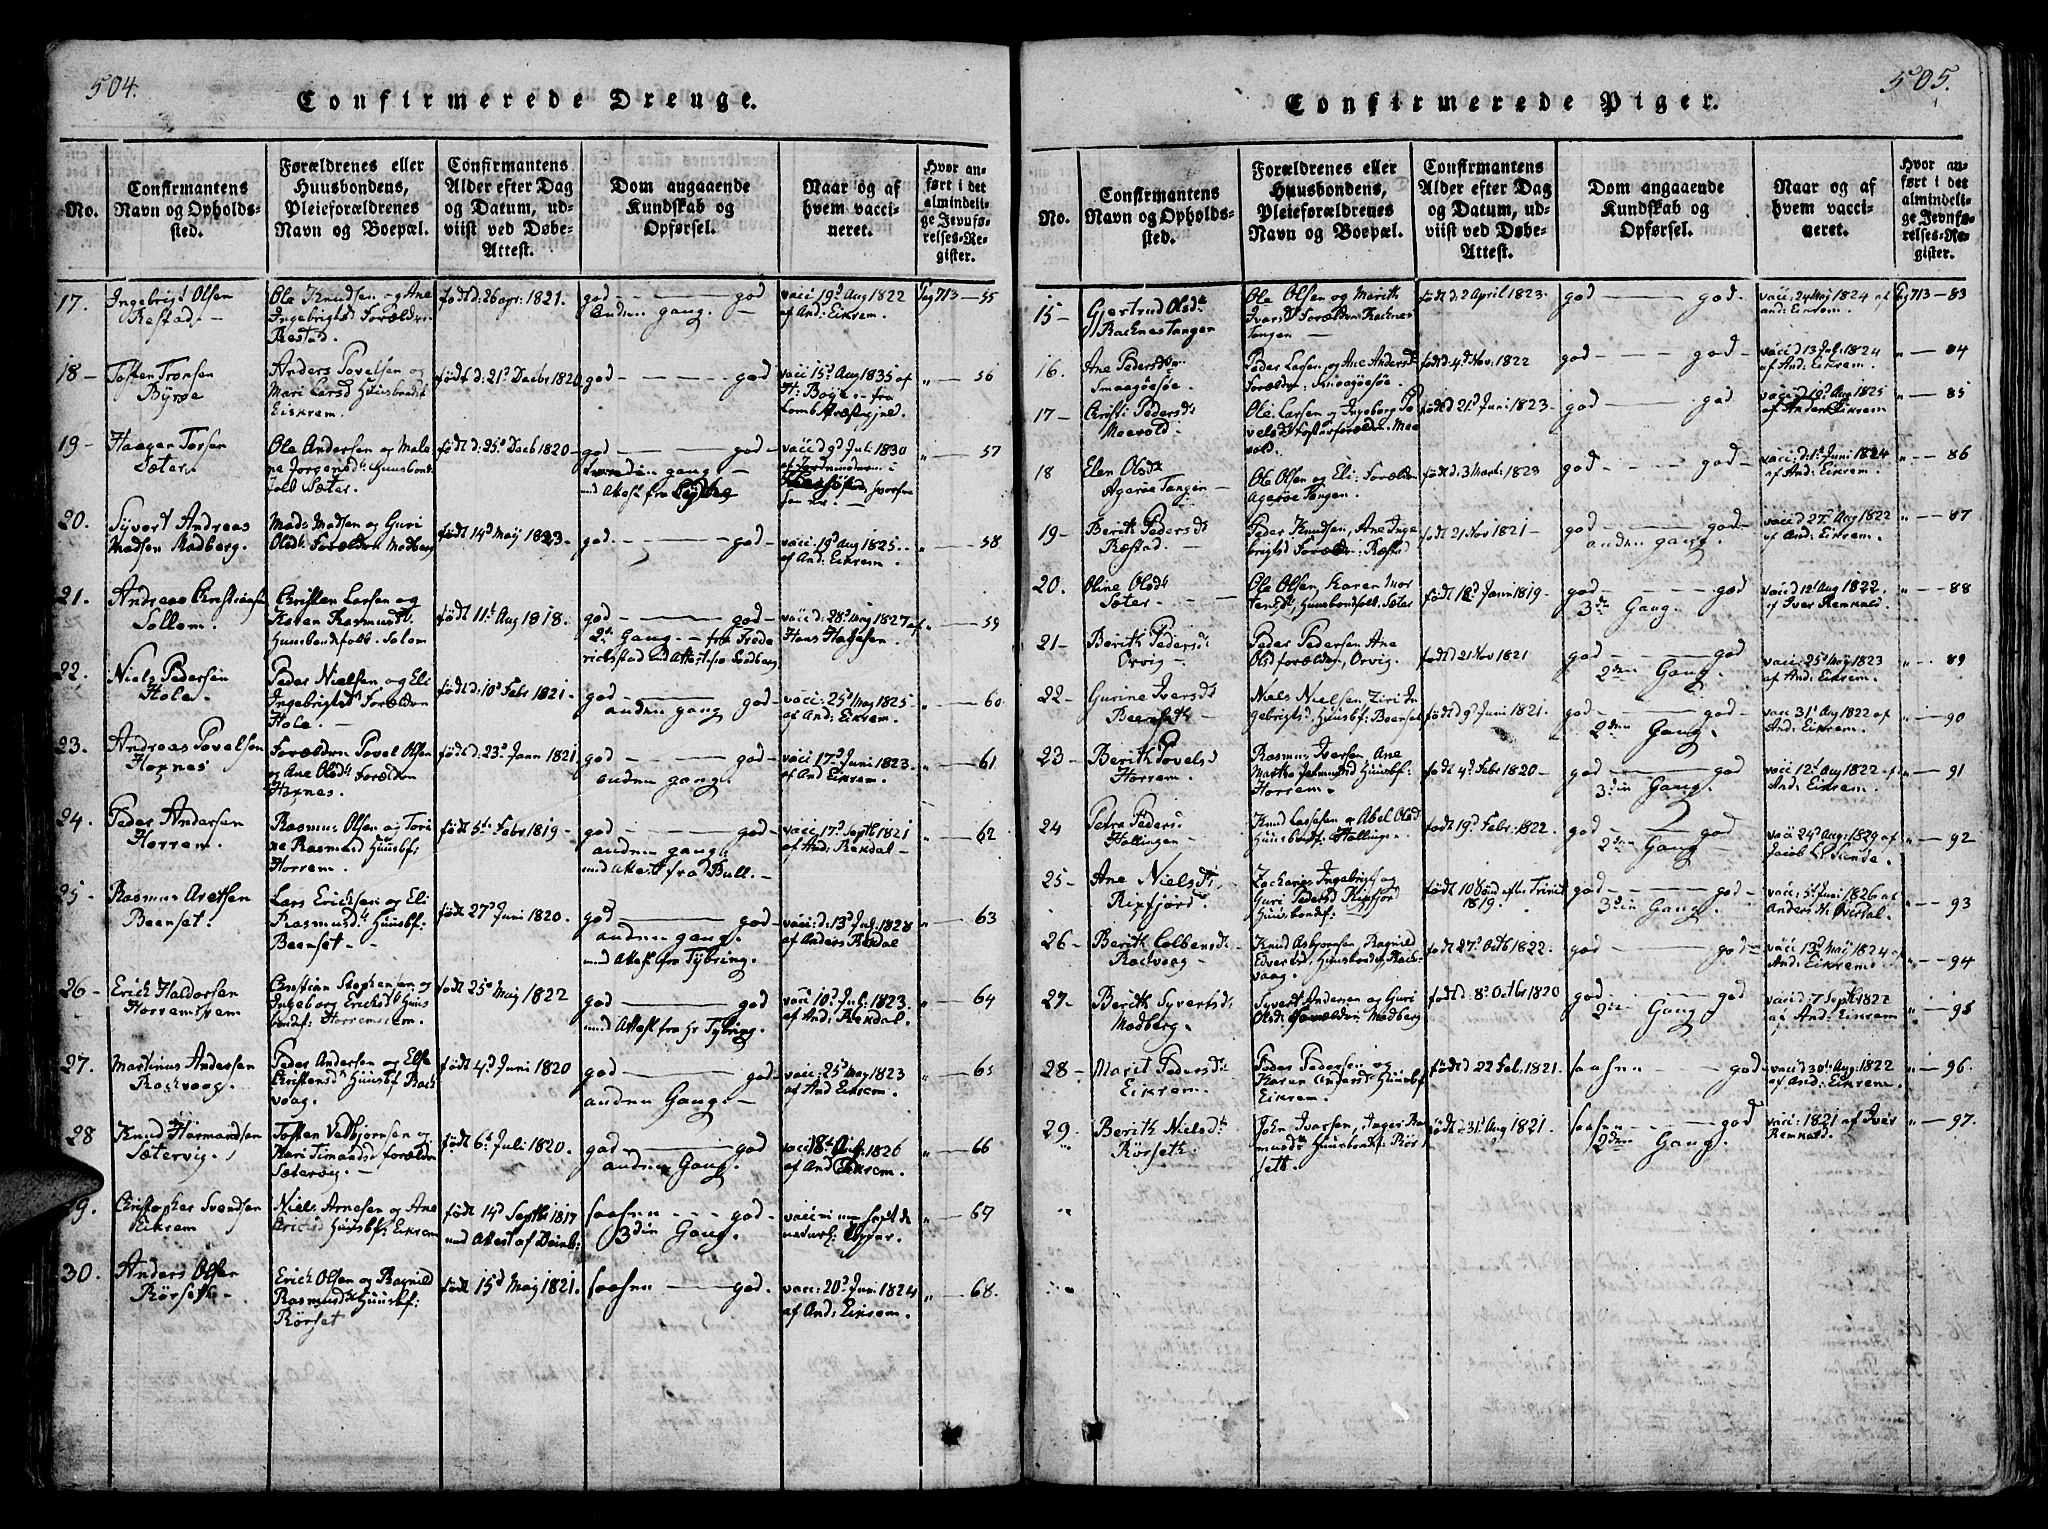 504.
Confirmerede Drenge.
No.
Confirmantens
Navn og Opholds-
sted.
Forældrenes eller
Huusbondens,
Pleieforældrenes
Navn og Boepæl.
Confirmantens
Alder efter Dag
og Datum, ud-
viist ved Døbe-
Attest.
Dom angaaende
Kundskab og
Opførsel.
Naar og af
hvem vacci-
neret.
Hvor an-
ført i det
almindeli-
ge Jevnfø-
relses-Re-
gister.
17. Ingebrigt Olsen
Restad.
Ole Knudsen og Ane
Ingebrigtsd Forældre
Restad.
født d: 26 apr: 1821.
god — god
anden gang.
vacc 19d Aug 1822
af And: Eikrem.
Pag 713 — 55
18 - Tosten Tronsen
Byrøe
Anders Povelsen og
Mari Larsd Huusbondf
Eiskrem.
født d: 21d Decbr 1820
god — god
vacc: 15d Aug 1835 af
H: Boye - fra
Lomb Præstegjeld.
" — 56
19 - Haagen Torsen
Sæter.
Ole Andersen og Male-
ne Jørgensd: Huusbond-
folk Sæter.
født d: 25d Decb 1820.
god — god
gang
med Attest fra
vacc d 9d Juli 1830
" — 57
20. Syvert Andreas
Madsen Modberg.
Mads Madsen og Guri
Olsd: Forældre Modberg
født 14d Maj 1823.
god — god
vacc: 19d Aug 1825.
af And: Eikrem.
" — 58
21. Andreas Christiansen
Sollem.
Christen Larsen og
Karen Rasmusdt
Huusbondfolk Solem
født 11t Aug 1818.
god — god
2de Gang. - fra Frede
richstad med Attest fra
vacc d: 28d Maj 1827 af
Hans
" — 59
22. Niels Pedersen
Hole.
Peder Nielsen og Eli
Ingebrigtsd Forældre
Hole.
født d: 10d Febr 1821.
god — god
anden gang
vacc: 25d Maj 1825
af And: Eikrem.
" — 60
23. Andreas Povelsen
Hoxnes
Forældre Povel Olsen
og Ane Olsdt Forældre
Hoxnes.
født d: 23d Jann 1821
god — god
anden gang.
vacc: 17d Juni 1823.
af And Eikrem.
" — 61
24. Peder Andersen
Horrem.
Rasmus Olsen og Tori
ne Rasmusd Huusbf:
Horrem.
født 5t Febr 1819 -
god — god
anden gang.
med Attest fra Bull.
vacc: 17d Septb 1821
af And: Rekdal -
" — 62
25 - Rasmus Aretsen
Beenset.
Lars Ericksen og Eli
Rasmusdt Huusbf:
Beenset -
født 27d Juni 1820.
god — god
anden gang.
med Attest fra Tybring.
vacc: d: 13d Jul: 1828
af Anders Rekdal
" — 63
26 - Erick Haldorsen
Horremsrem.
Christian Stephensen og
Ingeborg Ericksdt Huus
bondf: Horremsrem.
født 25d Maj 1822
god — god
med Attest fra Hr Tybring.
vacc: 10d Jul: 1823.
af And: Rekdal.
" — 64
27. Martinus Andersen
Rachvaag.
Peder Andersen og Else
Christensd: Huusbf Rach
vaag.
født 4d Juni 1820
god — god
anden Gang.
vacc: 25d Maj 1823
af And Eikrem.
" — 65
28 Knud Hermandsen
Sætervig.
Tosten Vedbjørnsen og
Kari Simandsd forældre
Sætervig.
født 6t Juli 1820.
god — god
anden Gang.
vacc: 18t Aug: 1826
af And Eikrem.
" — 66
29. Christopher Svendsen
Eikrem
Niels Arnesen og Ane
Erichsd Huusbf: Eikrem
født 14d Septb 1817
med Attest af
saasnn — god
3die Gang.
" — 67
30. Anders Olsen
Rørsetk -
Erich Olsen og Ragnild
Rasmusdt Huusbf:
Rørset
født 15d Maj 1821.
saasnn — god.
vacc: 20d Juni 1824
af And: Eikrem.
" — 68.
505.
Confirmerede Piger.
No.
Confirmantens
Navn og Opholds-
sted.
Forældrenes eller
Huusbondens,
Pleieforældrenes
Navn og Boepæl.
Confirmantens
Alder efter Dag
og Datum, ud-
viist ved Døbe-
Attest.
Dom angaaende
Kundskab og
Opførsel.
Naar og af
hvem vacci-
neret.
Hvor an-
ført i det
almindeli-
ge Jevnfø-
relses-Re-
gister.
15 - Gjertrud Olsdt
Raknestangen
Ole Olsen og Marith
Ivarsdt Forældre Raknes
Tangen
født d. 2 April 1823.
god — god.
vacc: 24 Maj 1824 af
And: Eikrem.
Pag 713 — 83
16. Ane Pedersdtr
Smaagøesøe.
Peder Larsen og Ane Andersd
Forældre: Smaagøesøe
født d. 4d Nov: 1822
god — god
vacc d 13 Jul: 1824
af And: Eikrem.
" — 84
17 - Christi Pedersdt
Moevold -
Ole Larsen og Ingeborg Po
velsd: Fosterforældre. Moe
vold.
født d 21d Juni 1823 -
god — god
vacc d 19d Aug 1825
af Anders Eikrem
" — 85
18 Elen Olsdt
Agerøe Tangen
Ole Olsen og Eli: Forældre
Agerøe Tangen
født d. 3 Mart: 1823
god — god
vacc: d. 1d Juni 1824
af And: Eikrem.
" — 86
19 - Berith Pedersdt
Ræstad.
Peder Knudsen, Ane Inge
brigtsd Forældre: Ræstad
født 21 Nov 1821 -
god — god -
anden gang
vacc d 27d Aug 1822
af And: Eikrem.
" — 87
20. Oline Olsdt
Sæter
Ole Olsen, Karen Mor
tensdt, Huusbondfolk. Sæter
født 12d Janu 1819.
god — god
3die Gang.
vacc d 12t Aug 1822.
af Iver Remkald.
" — 88
21 - Berith Pedersdt
Orvig
Peder Pedersen Ane
Olsd forældre, Orvig -
født d 21 Nov 1821
god — god
2den Gang
vacc: 25d Maj 1823
af And: Eikrem.
" — 89
22 - Gurine Iversdt
Beensetk
Niels Nielsen, Ziri In
gebrigtsd, Huusbf: Beenset
født d 9d Juni 1821.
god — god
2den Gang.
vacc 31d Aug 1822 af
And: Eikrem.
" — 90
23 - Berith Povelsd
Horrem.
Rasmus Iversen Ane
Martha Huusbf:
Horrem.
født 4d Febr 1820 -
god — god
3die Gang.
vacc: 12d Aug 1822 af
And: Eikrem.
" — 91
24 Petra Peders
Hollingen
Knud Lassesen og Abel Olsd
Huusbondf: Holling.
født 19d Febr: 1822.
god — god
2den Gang
vacc 24d Aug: 1829 af
Jacob L Sunde.
" — 92
25 - Ane Nielsdt
Ripfjord
Zacharias Ingebrigts og
Guri Pedersd Ripfjord
Huusbondf:
født 10 Sønd efter Trinit
1819.
god — god -
3die Gang
vacc: 5d Juni 1826 af
Anders N: Øverdal.
" — 93
26 - Berith Colbensdt
Rachvaag
Knud Asbjørnsen, Ragnild
Edverdsd, Huusbondf, Rach
vaag.
født 27d Octb 1822.
god — god -
vacc 13d Maij 1824 af
And: Eikrem.
" — 94
27 - Berith Syvertsdt
Modberg.
Syvert Andersen og Guri
Olsd: Forældre Modberg
født d. 8d Octbr 1820
god — god
2de Gang
vacc: d 7 Septb 1822
af And: Eikrem
" — 95
28 - Marit Pedersdt
Eikrem
Peder Pedersen og
Karen Andersdt Huusbf
Eikrem.
født d 22 Feb 1821.
saasnn — god
vacc d 30t Aug: 1822
af And: Eikrem.
" — 96.
29. Berith Nielsdt
Rørsetk
John Ivarsen, Inger Ras
musdt Huusbondf: Rør
setk.
født d. 31t Aug 1821.
saasnn — god
2den Gang.
vacc: 1821 af Iver
Remkald.
" — 97.